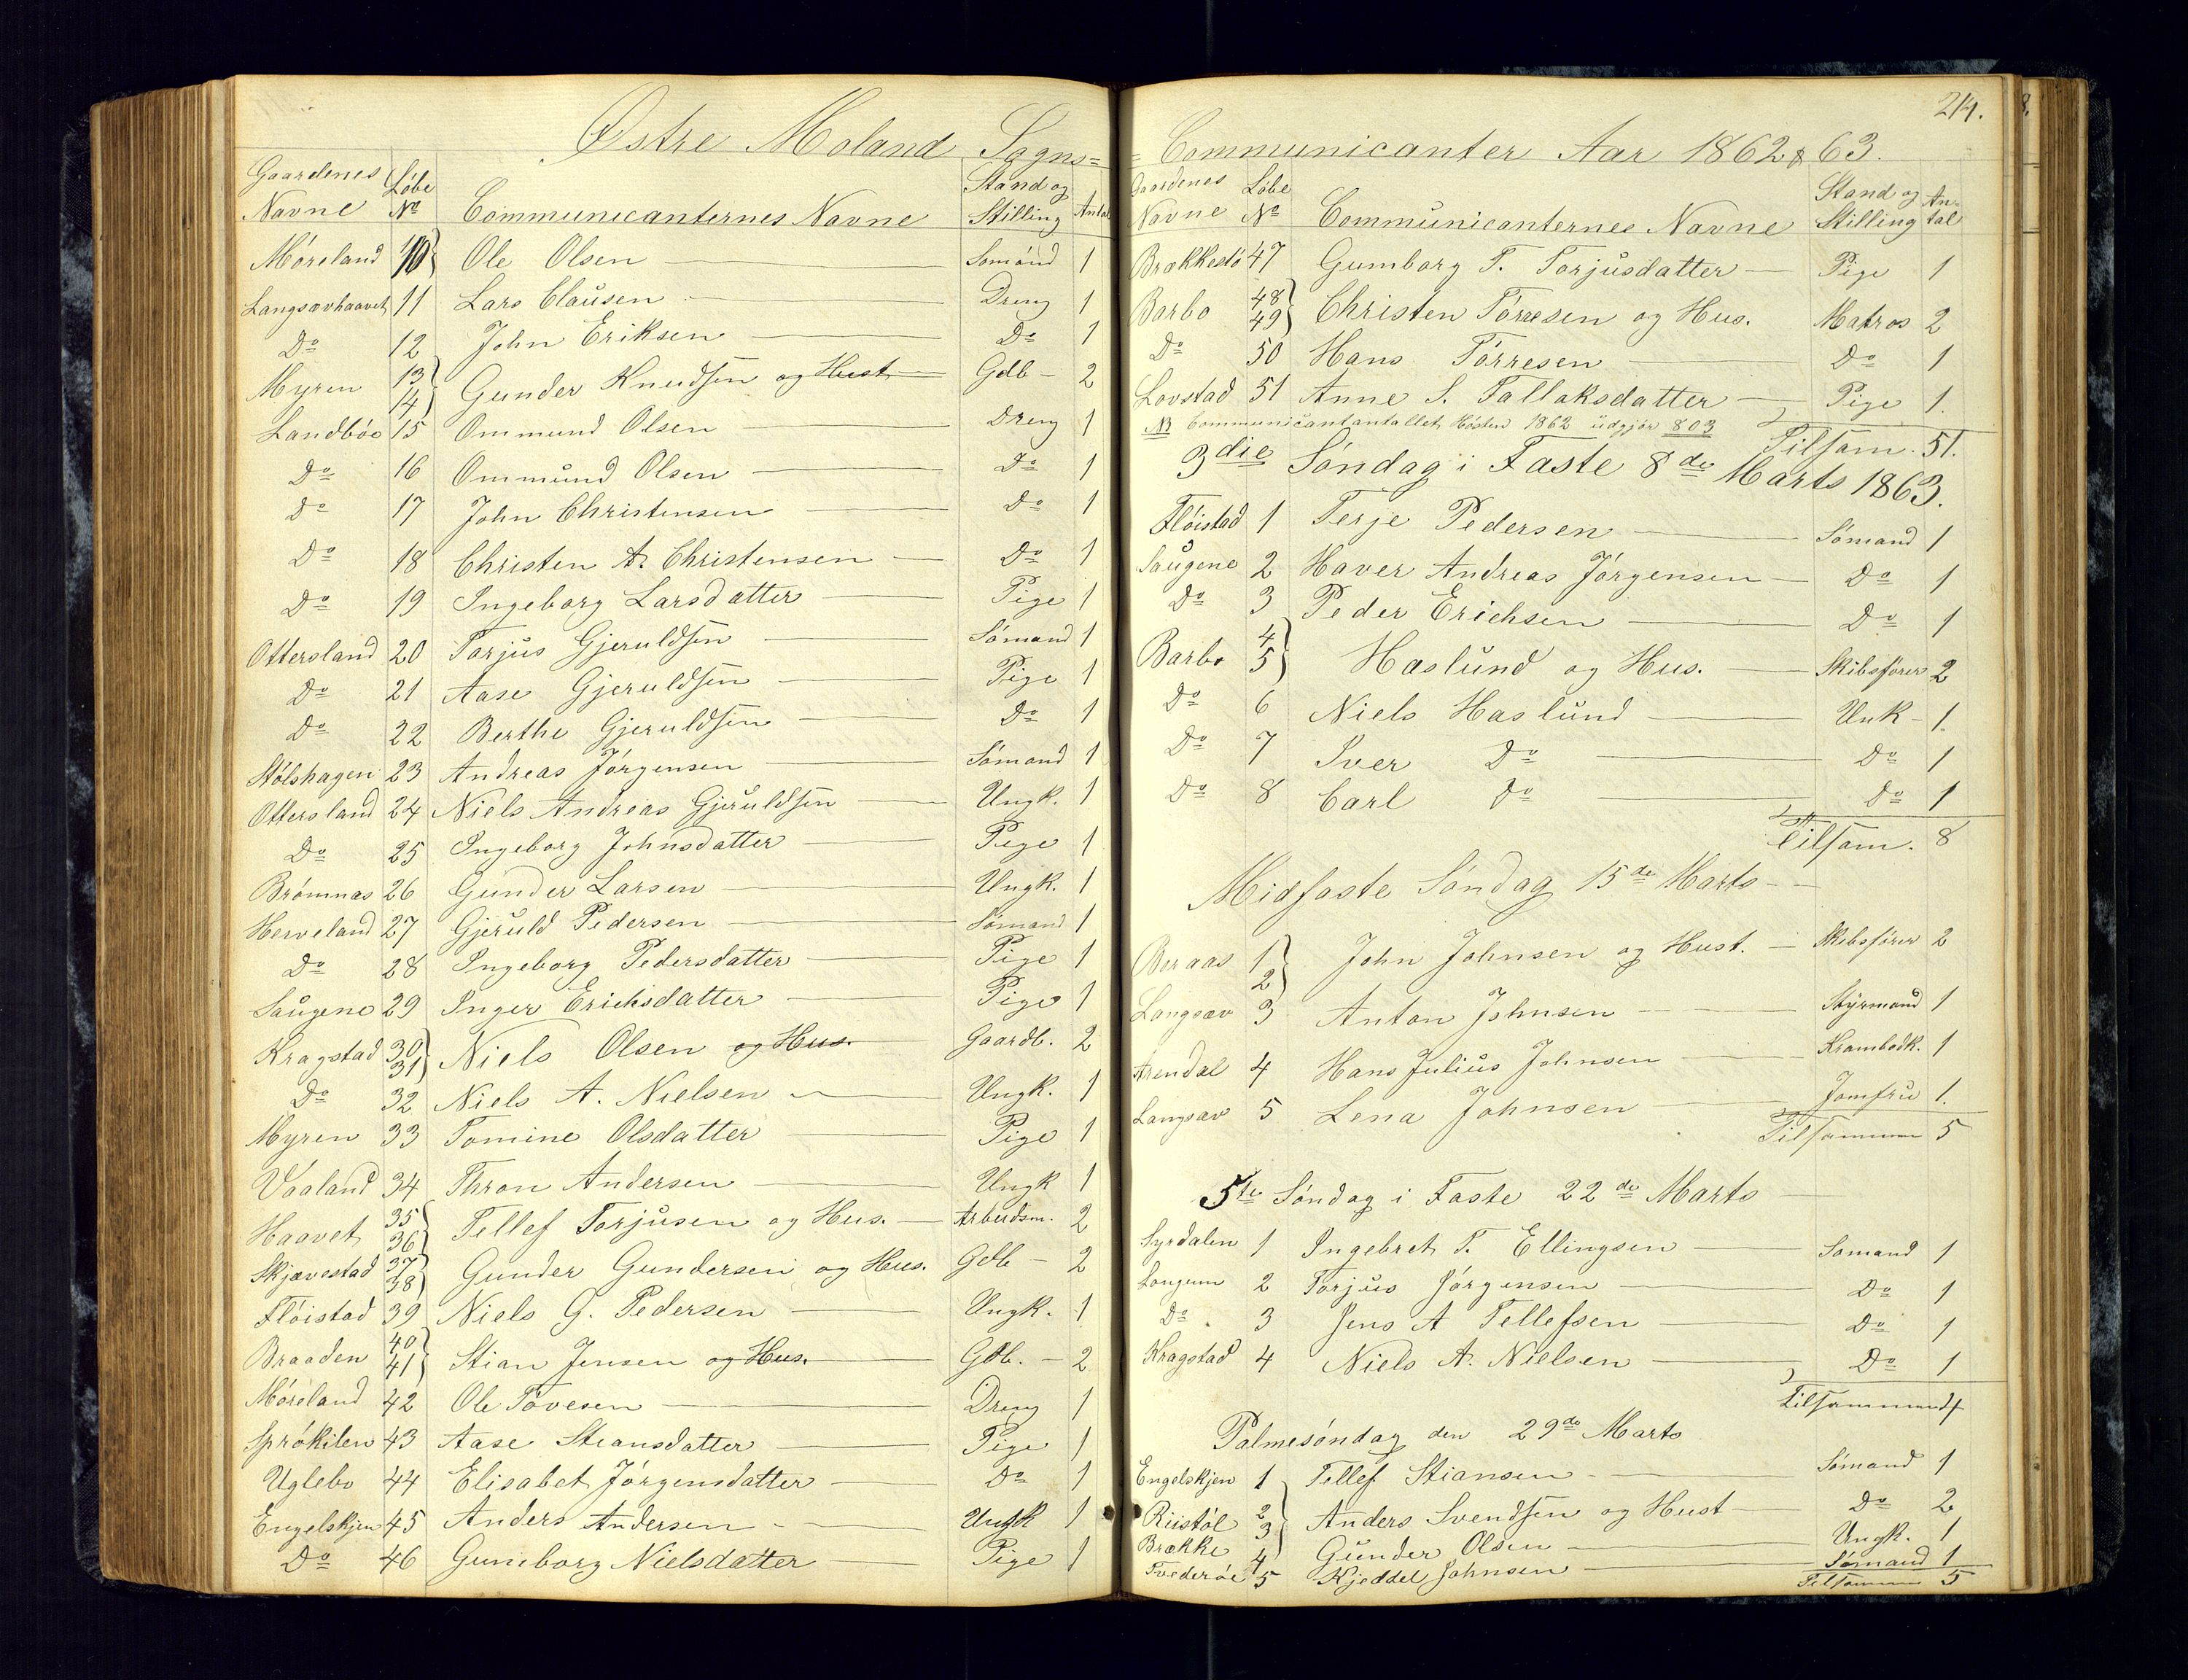 Østre Moland Sogns=
Gaardenes Navne Løbe No Communicanternes Navne Stand og Stilling Antal
Møreland 10 Ole Olsen Sømand 1
Langsævhaavet 11 Lars Clausen Dreng 1
Do 12 John Eriksen Do 1
Myren 13 14 Gunder Knudsen og Hust Gdb 2
Landbøe 15 Ommund Olsen Dreng 1
Do 16 Ommund Olsen Do 1
Do 17 John Christensen Do 1
Do 18 Christen A. Christensen Do 1
Do 19 Ingeborg Larsdatter Pige 1
Ottersland 20 Torjus Gjeruldsen Sømand 1
Do 21 Aase Gjeruldsen Pige 1
Do 22 Berthe Gjeruldsen Do 1
Stølshagen 23 Andreas Jørgensen Sømand 1
Ottersland 24 Niels Andreas Gjeruldsen Ungk. 1
Do 25 Ingeborg Johnsdatter Pige 1
Brømnas 26 Gunder Larsen Ungk. 1
Herveland 27 Gjeruld Pedersen Sømand 1
Do 28 Ingeborg Pedersdatter Pige 1
Saugene 29 Inger Erichsdatter Pige 1
Kragstad 30 31 Niels Olsen og Hus. Gaardb. 2
Do 32 Niels A. Nielsen Ungk. 1
Myren 33 Tomine Olsdatter Pige 1
Vaaland 34 Thron Andersen Ungk 1
Haavet 35 36 Tellef Torjusen og Hus. Arbeidsm. 2
Skjævestad 37 38 Gunder Gundersen og Hus. Gdb 2
Fløistad 39 Niels G. Pedersen Ungk. 1
Braaden 40 41 Stian Jensen og Hus. Gdb. 2
Møreland 42 Ole Tovesen Dreng 1
Sprøkilen 43 Aase Stiansdatter Pige 1
Uglebo 44 Elisabet Jørgensdatter Do 1
Engelskjen 45 Anders Andersen Ungk 1
Do 46 Gunborg Nielsdatter Pige 1
214.
= Communicanter Aar 1862 & 63.
Gaardenes Navne Løbe No Communicanternes Navne Stand og Stilling Antal
Brækkestø 47 Gumborg T. Torjusdatter Pige 1
Barbo 48 49 Christen Tørresen og Hus. Matros 2
Do 50 Hans Tørresen Do 1
Lovstad 51 Anne S. Tallaksdatter Pige 1.
NB Communicantantallet Høsten 1862 udgjør 803
Tilsam. 51.
3die Søndag i Faste 8de Marts 1863.
Fløistad 1 Terje Pedersen Sømand 1
Saugene 2 Haver Andreas Jørgensen Do 1
Do 3 Peder Erichsen Do 1
Barbo 4 5 Haslund og Hus. Skibsfører 2
Do 6 Niels Haslund Unk 1.
Do 7 Iver Do Do 1
Do 8 Carl Do Do 1
Tilsam. 8
Midfaste Søndag 15de Marts
Beraas 1 2 John Johnsen og Hust. Skibsfører 2
Langsæv 3 Anton Johnsen Styrmand 1
Arendal 4 Hans Julius Johnsen Krambodk. 1
Langsæv 5 Lena Johnsen Jomfru 1.
Tilsammen 5
5te Søndag i Faste 22de Marts
Syrdalen 1 Ingebret T. Ellingsen Sømand 1
Longum 2 Torjus Jørgensen Do 1
Do 3 Jens A Tellefsen Do 1
Kragstad 4 Niels A. Nielsen Do 1
Tilsammen 4
Palmesøndag den 29de Marts
Engelskjen 1 Tellef Stiansen Sømand 1
Riistøl 2 3 Anders Svendsen og Hust Do 2
Brække 4 Gunder Olsen Ungk. 1
Tvederøe 5 Kjeddel Johnsen Sømand 1
Tilsammen 5